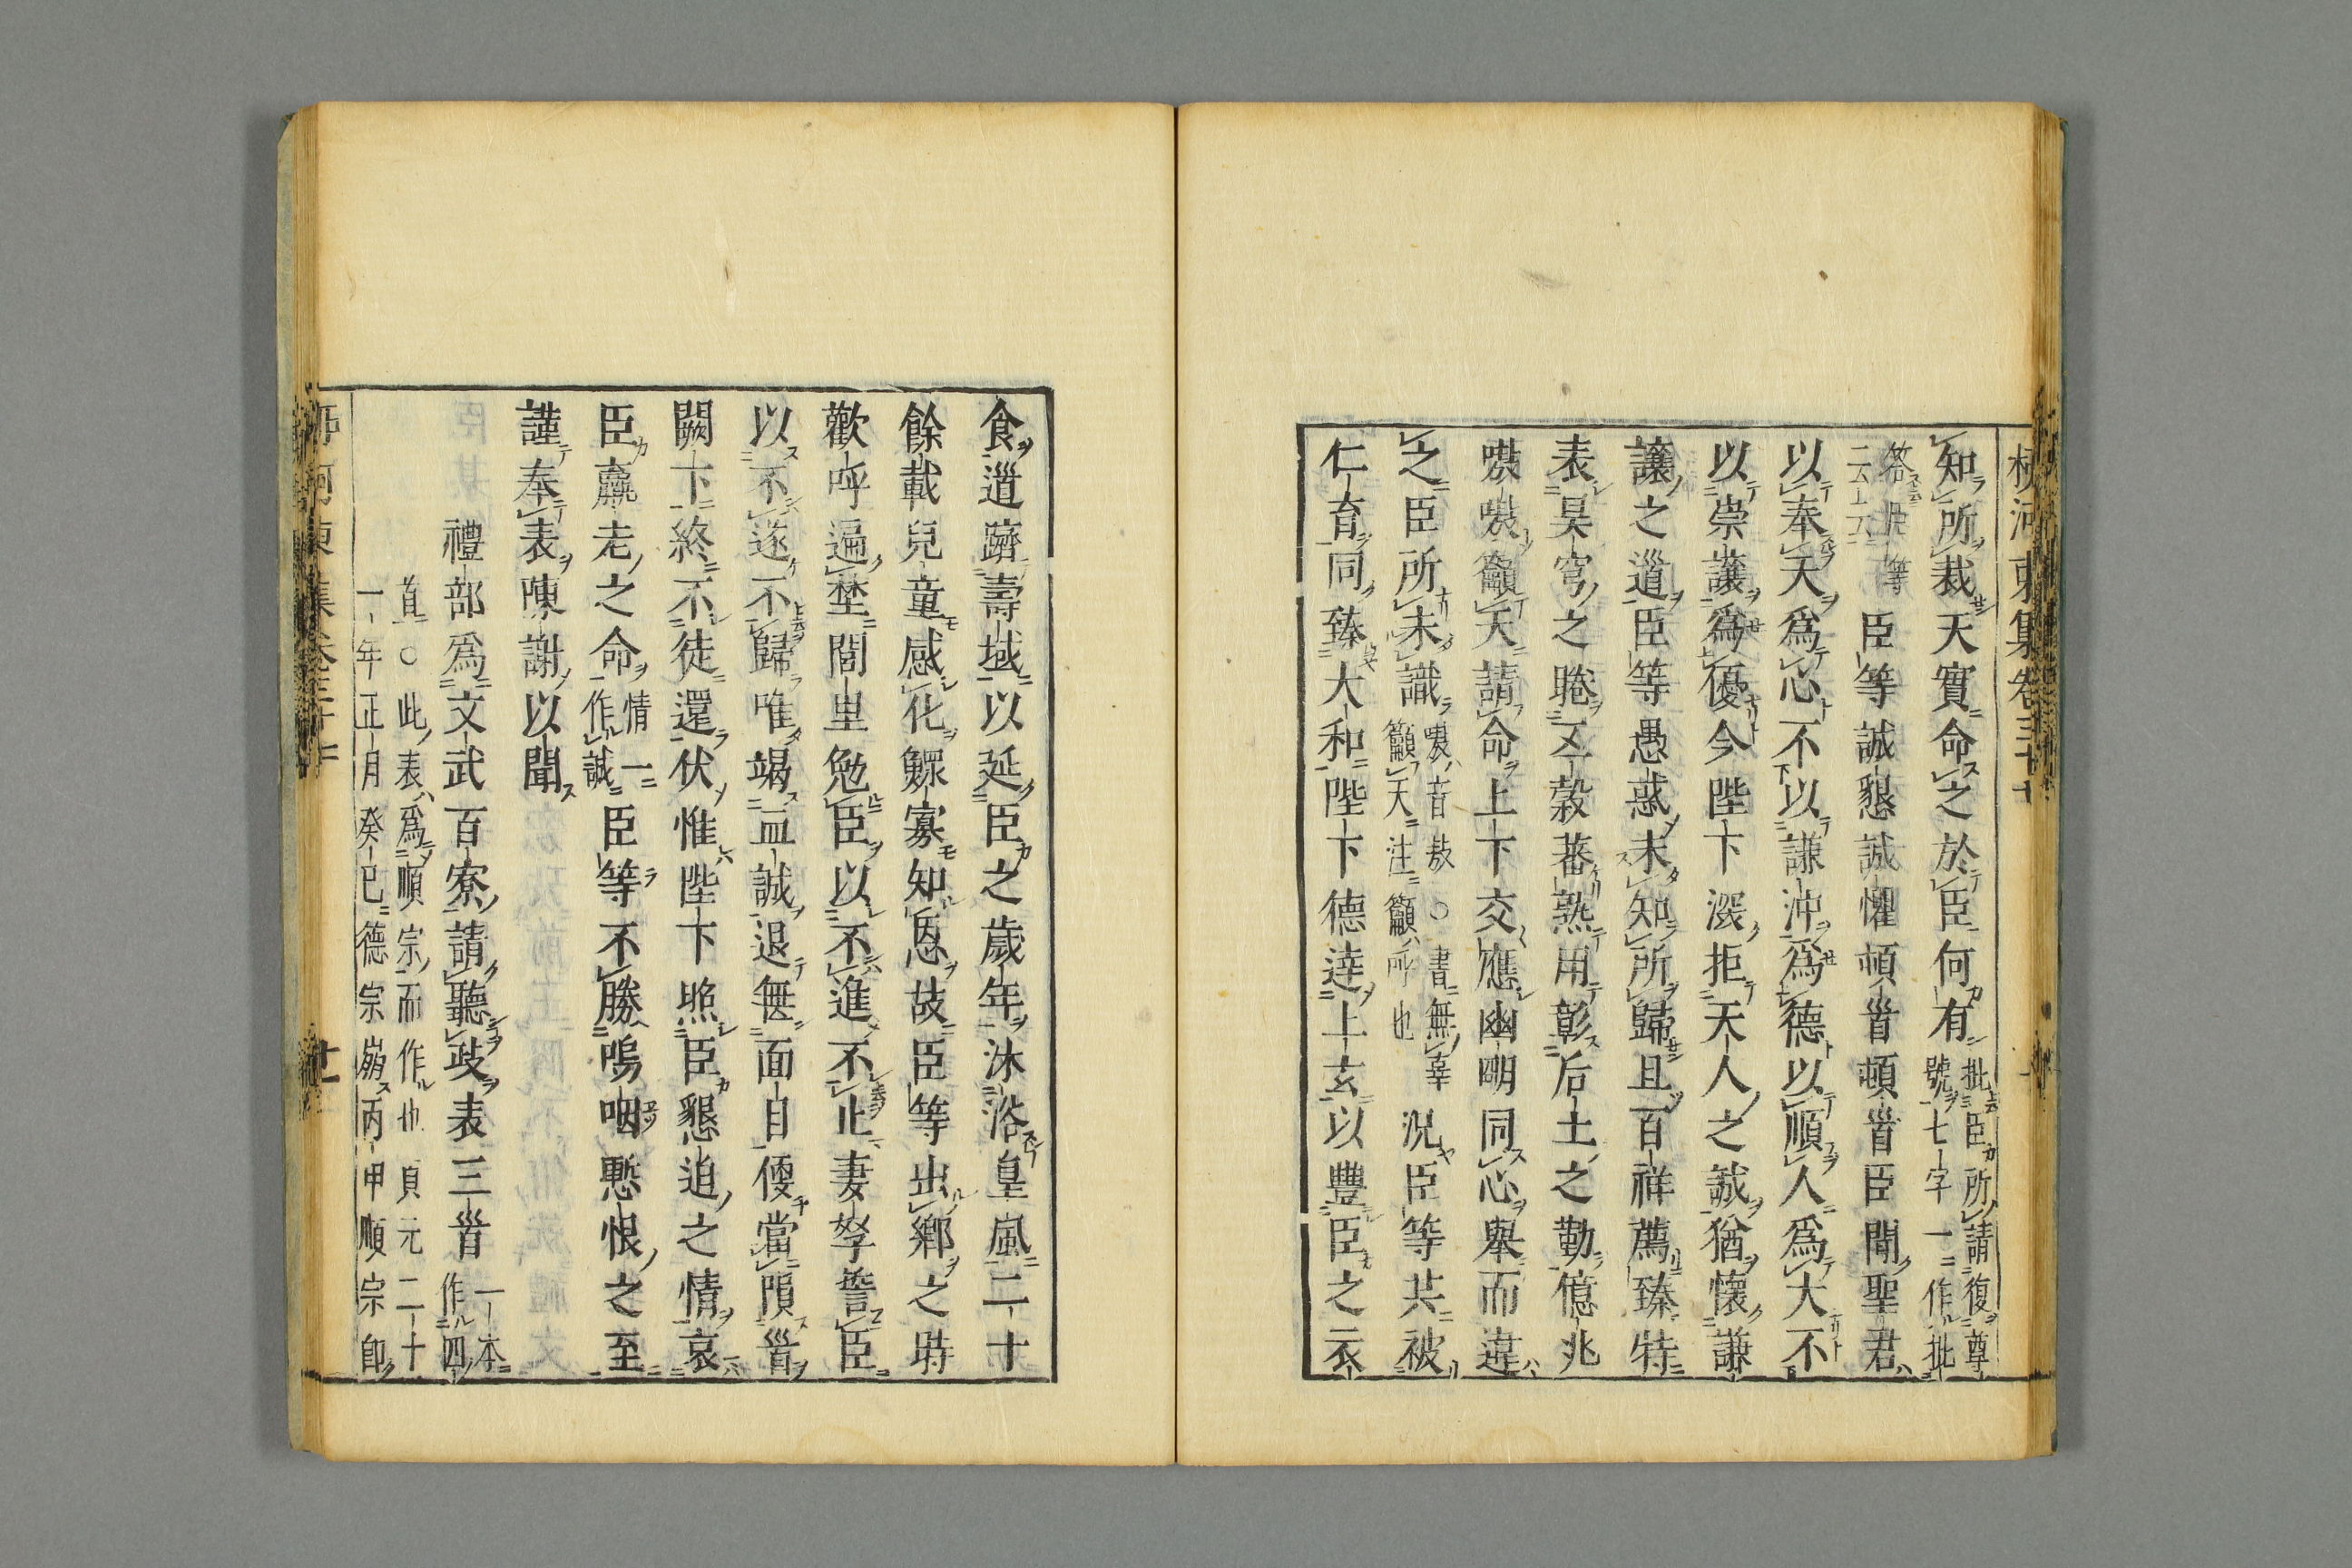 柳河東集卷三十七
知所裁天實命之於臣何有批臣所請復尊
號七字一作批
答臣等
云云臣等誠懇誠懼頓首頓首臣聞聖君
以奉天爲心不以謙沖爲德以順人爲大不
以崇讓爲優今陛下深拒天人之誠猶懷謙
讓之道臣等愚惑未知所歸且百祥薦臻特
表昊穹之睠五穀蕃熟用彰后土之勤億兆
嗷嗷籲天請命上下交應幽明同心舉而違
之臣所未識嗷音敖○書無辜
籲天注籲呼也况臣等共被
仁育同臻大和陛下德達上玄以豐臣之衣
食道躋壽域以延臣之歲年沐浴皇風二十
餘載兒童感化鰥寡知恩故臣等出鄉之時
歡呼遍埜閭里勉臣以不進不止妻孥誓臣
以不遂不歸唯竭血誠退無面目便當隕首
闕下終不徒還伏惟陛下照臣懇迫之情哀
臣羸老之命情一
作誠臣等不勝嗚咽慙恨之至
謹奉表陳謝以聞
禮部爲文武百寮請聽政表三首一本
作四
首○此表爲順宗而作也貞元二十
一年正月癸巳德宗崩丙申順宗卽
柳河東集卷三十七
十一